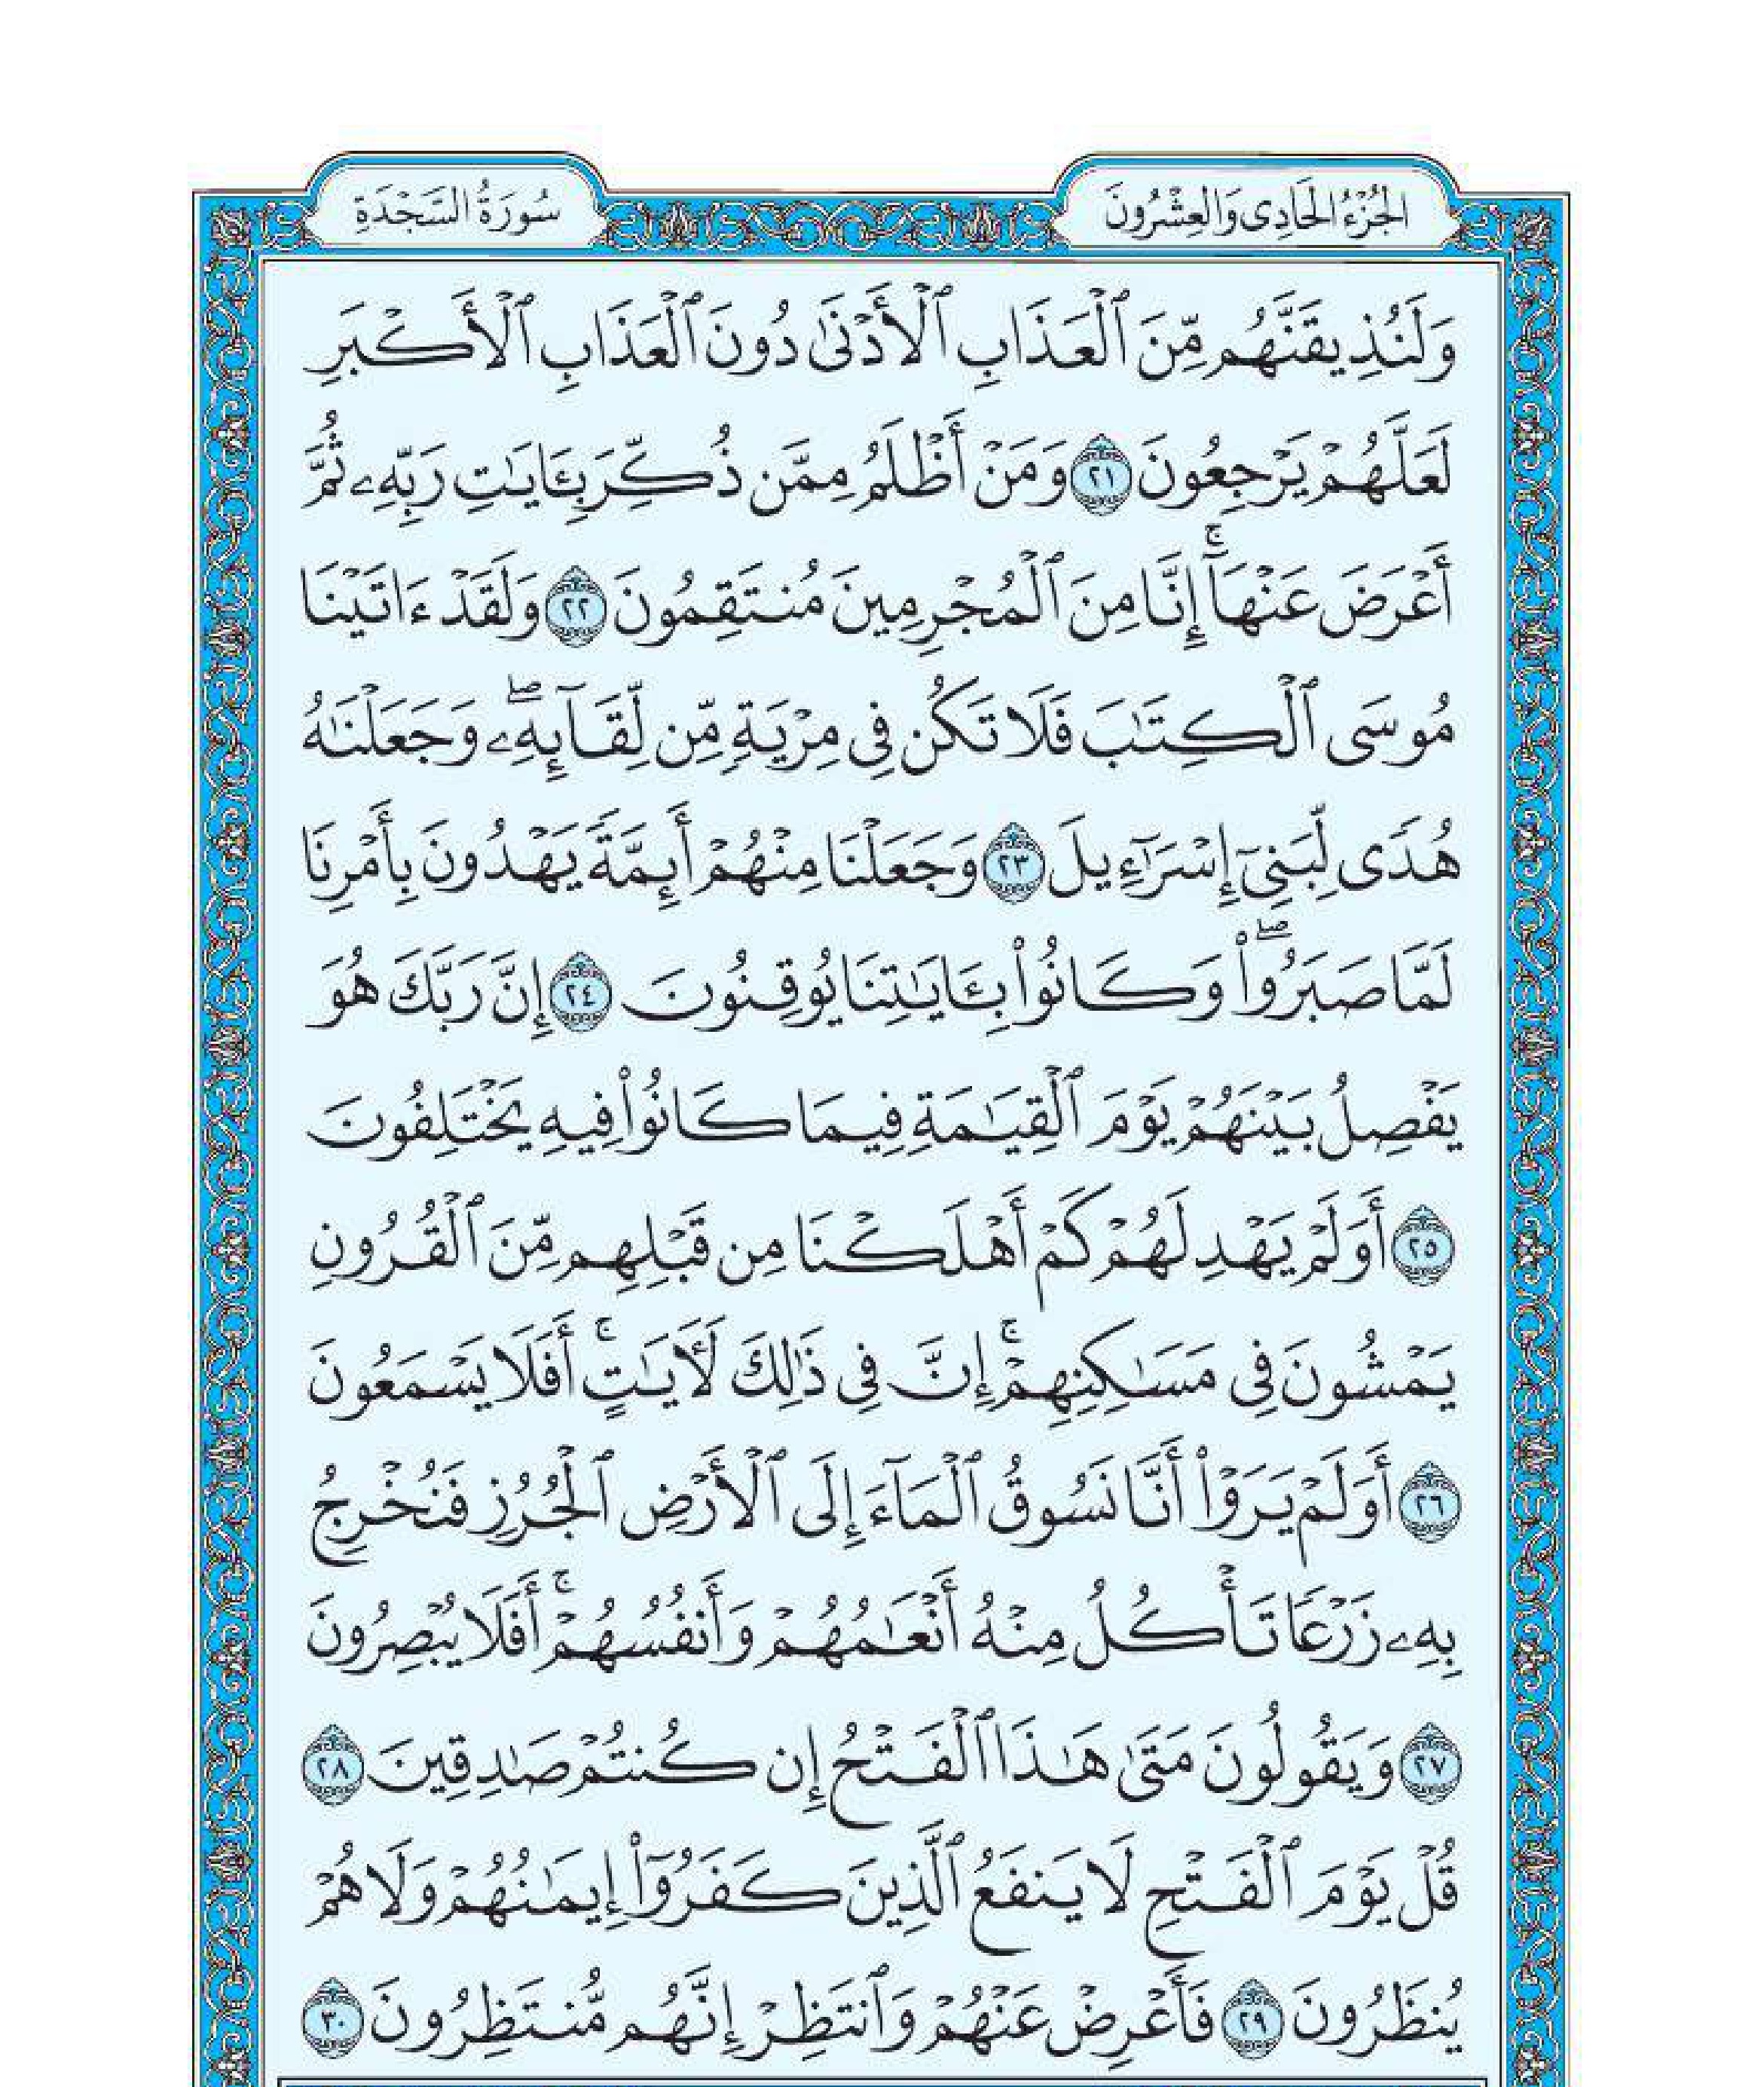 الجُزْءُ الحَادِى وَالعِشْرُونَ
سُورَةُ السَّجْدَةِ
وَلَنُذِيقَنَّهُم مِّنَ ٱلْعَذَابِ ٱلْأَدْنَىٰ دُونَ ٱلْعَذَابِ ٱلْأَكْبَرِ
لَعَلَّهُمْ يَرْجِعُونَ ٢١ وَمَنْ أَظْلَمُ مِمَّن ذُكِّرَ بِـَٔايَـٰتِ رَبِّهِۦ ثُمَّ
أَعْرَضَ عَنْهَآ ۚ إِنَّا مِنَ ٱلْمُجْرِمِينَ مُنتَقِمُونَ ٢٢ وَلَقَدْ ءَاتَيْنَا
مُوسَى ٱلْكِتَـٰبَ فَلَا تَكُن فِى مِرْيَةٍ مِّن لِّقَآئِهِۦ ۖ وَجَعَلْنَـٰهُ
هُدًى لِّبَنِىٓ إِسْرَٰٓءِيلَ ٢٣ وَجَعَلْنَا مِنْهُمْ أَئِمَّةً يَهْدُونَ بِأَمْرِنَا
لَمَّا صَبَرُوا۟ ۖ وَكَانُوا۟ بِـَٔايَـٰتِنَا يُوقِنُونَ ٢٤ إِنَّ رَبَّكَ هُوَ
يَفْصِلُ بَيْنَهُمْ يَوْمَ ٱلْقِيَـٰمَةِ فِيمَا كَانُوا۟ فِيهِ يَخْتَلِفُونَ
٢٥ أَوَلَمْ يَهْدِ لَهُمْ كَمْ أَهْلَكْنَا مِن قَبْلِهِم مِّنَ ٱلْقُرُونِ
يَمْشُونَ فِى مَسَـٰكِنِهِمْ ۚ إِنَّ فِى ذَٰلِكَ لَـَٔايَـٰتٍ ۚ أَفَلَا يَسْمَعُونَ
٢٦ أَوَلَمْ يَرَوْا۟ أَنَّا نَسُوقُ ٱلْمَآءَ إِلَى ٱلْأَرْضِ ٱلْجُرُزِ فَنُخْرِجُ
بِهِۦ زَرْعًا تَأْكُلُ مِنْهُ أَنْعَـٰمُهُمْ وَأَنفُسُهُمْ ۚ أَفَلَا يُبْصِرُونَ
٢٧ وَيَقُولُونَ مَتَىٰ هَـٰذَا ٱلْفَتْحُ إِن كُنتُمْ صَـٰدِقِينَ ٢٨
قُلْ يَوْمَ ٱلْفَتْحِ لَا يَنفَعُ ٱلَّذِينَ كَفَرُوٓا۟ إِيمَـٰنُهُمْ وَلَا هُمْ
يُنظَرُونَ ٢٩ فَأَعْرِضْ عَنْهُمْ وَٱنتَظِرْ إِنَّهُم مُّنتَظِرُونَ ٣٠